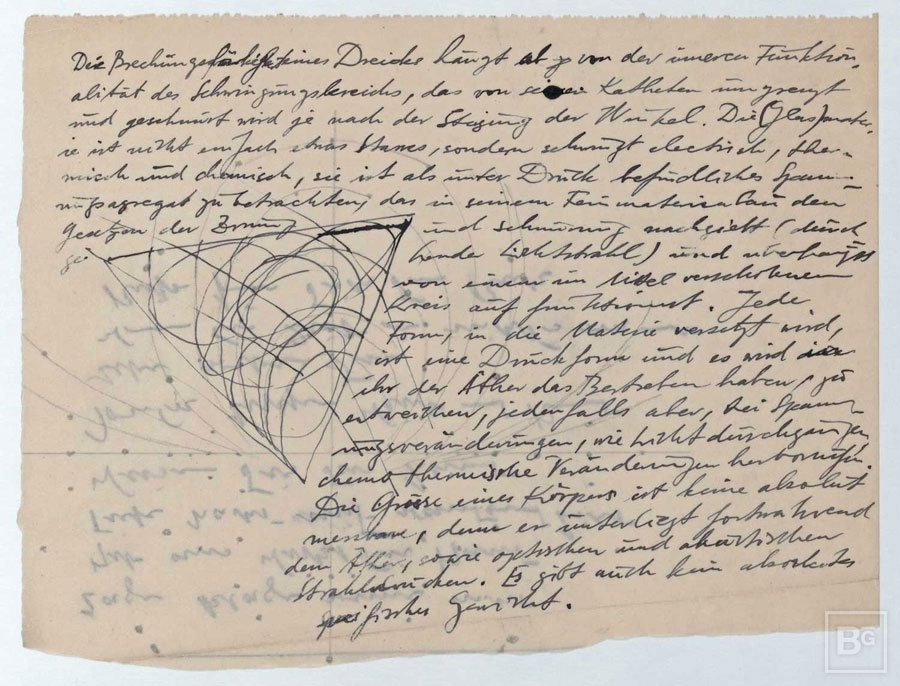 Die Brechungsfähigkeit eines Dreicks hängt ab von der inneren Funktion-
alität des Schwingungsbereichs, das von seinen Katheten umgrenzt
und geschnürt wird je nach der Stegung der Winkel. Die (Glas)mater-
ie ist nicht einfach etwas Starres, sondern schwingt electrisch, ther-
misch und chemisch, sie ist als unter Druck befindliches Span-
nungsagregat zu betrachten, das in seinem Feinmaterialbau den
Gesetzen der
und schwingung nachgiebt (durch
ge hende Lichtstrahl) und überhaupt
von einem im Mittel verschobenen
Kreis auf funktioniert. Jede
Form, in die Materie versetzt wird,
ist eine Druckform und es wird in
ihr der Äther das Bestreben haben, zu
entweichen, jedenfalls aber, bei Span-
nungsveränderungen, wie Lichtdurchgängen
chemo thermische Veränderungen hervorrufen.
Die Grösse eines Körpers ist keine absolut
messbare, denn er unterliegt fortwährend
dem Äther, sowie optischen und akustischen
Strahldrücken. Es gibt auch kein absolutes
speifisches Gewicht.
BG